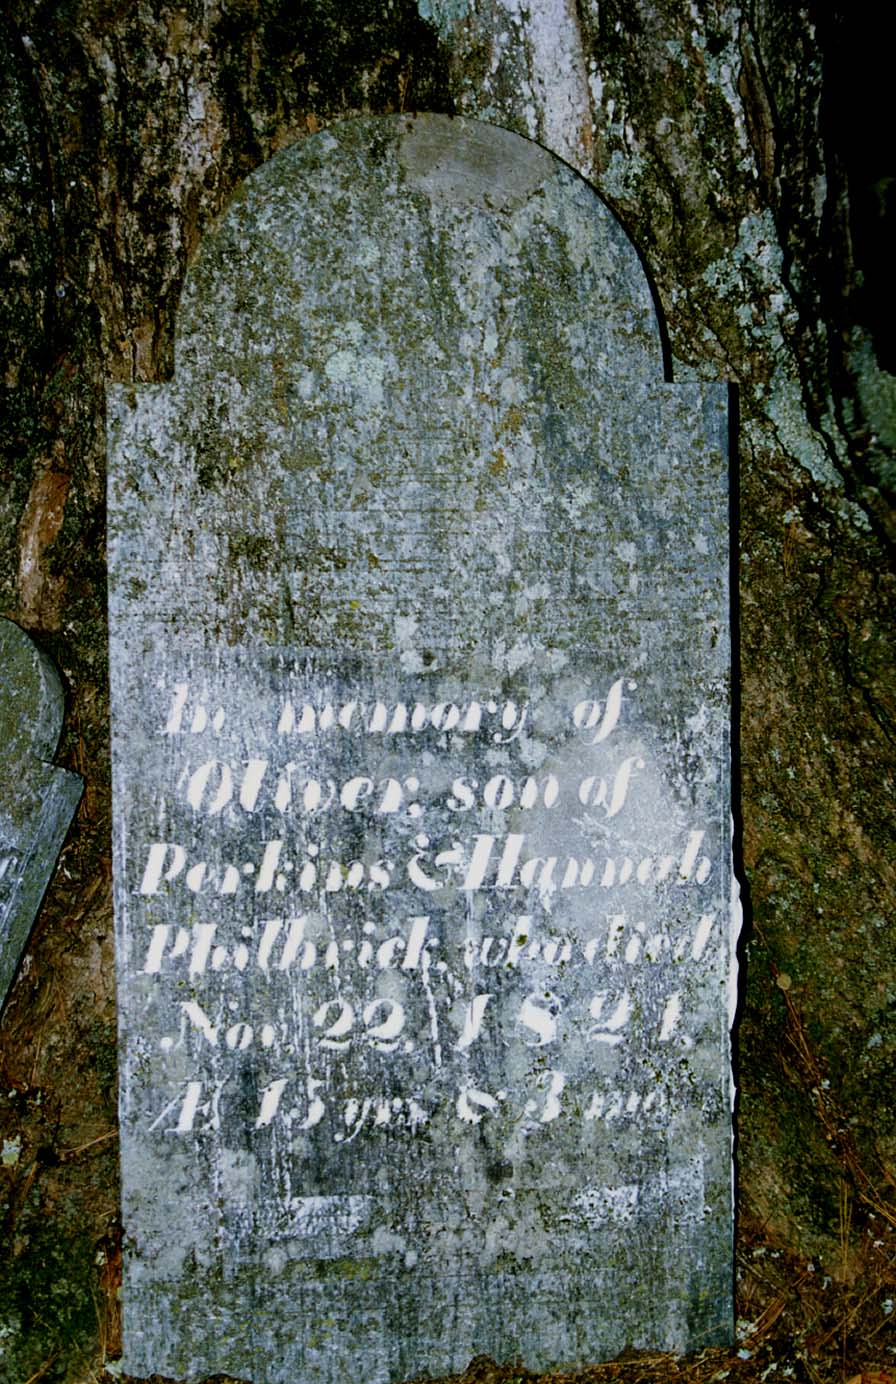 In memory of
Oliver, son of
Perkins & Hannah
Philbrick, who died
Nov. 22, 1821,
Æ 15 yrs & 3 mo